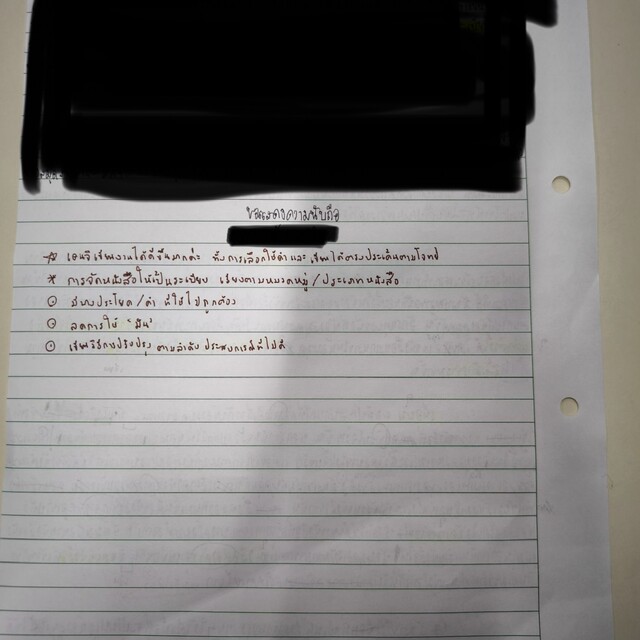 ขอแสดงความนับถือ
* เอนจิเขียนงานได้ดีขึ้นมากค่ะ ทั้งการเลือกใช้คำและเขียนได้ตามประเด็นตามโจทย์
* การจัดหนังสือให้เป็นระเบียบ เรียงตามหมวดหมู่/ประเภทหนังสือ
⊙ มีบางประโยค/คำ ที่ใช้ไม่ถูกต้อง
⊙ ลดการใช้ "มัน"
⊙ เขียนวิธีการปรับปรุง ตามลำดับ ประสบการณ์ที่ไม่ดี